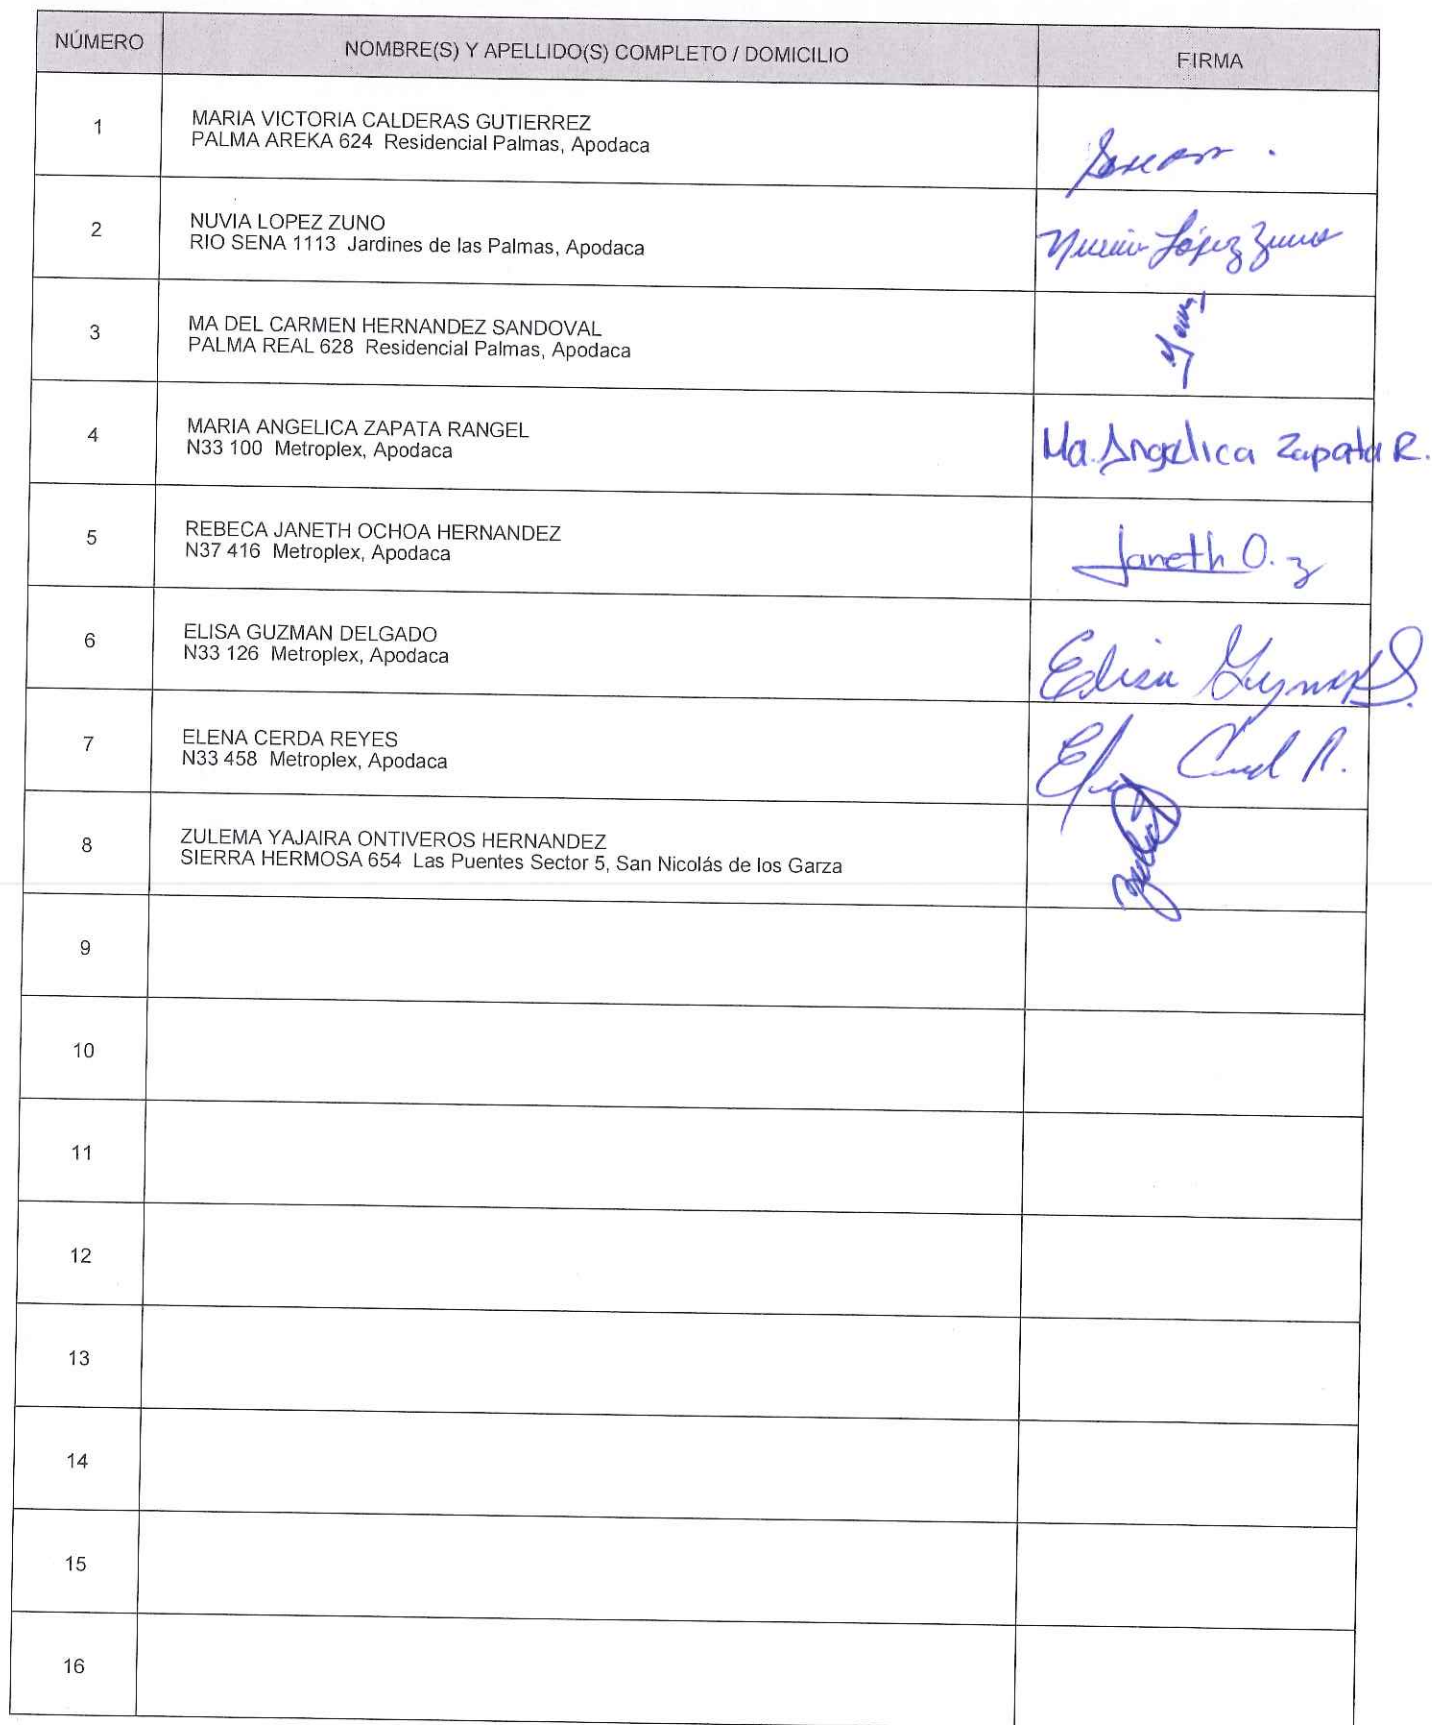 NÚMERO
NOMBRE(S) Y APELLIDO(S) COMPLETO / DOMICILIO
FIRMA
1
MARIA VICTORIA CALDERAS GUTIERREZ
PALMA AREKA 624 Residencial Palmas, Apodaca
2
NUVIA LOPEZ ZUNO
RIO SENA 1113 Jardines de las Palmas, Apodaca
Nuvia López Zuno
3
MA DEL CARMEN HERNANDEZ SANDOVAL
PALMA REAL 628 Residencial Palmas, Apodaca
4
MARIA ANGELICA ZAPATA RANGEL
N33 100 Metroplex, Apodaca
Ma. Angelica Zapata R.
5
REBECA JANETH OCHOA HERNANDEZ
N37 416 Metroplex, Apodaca
Janeth O.
6
ELISA GUZMAN DELGADO
N33 126 Metroplex, Apodaca
Elisa
7
ELENA CERDA REYES
N33 458 Metroplex, Apodaca
8
ZULEMA YAJAIRA ONTIVEROS HERNANDEZ
SIERRA HERMOSA 654 Las Puentes Sector 5, San Nicolás de los Garza
9
10
11
12
13
14
15
16